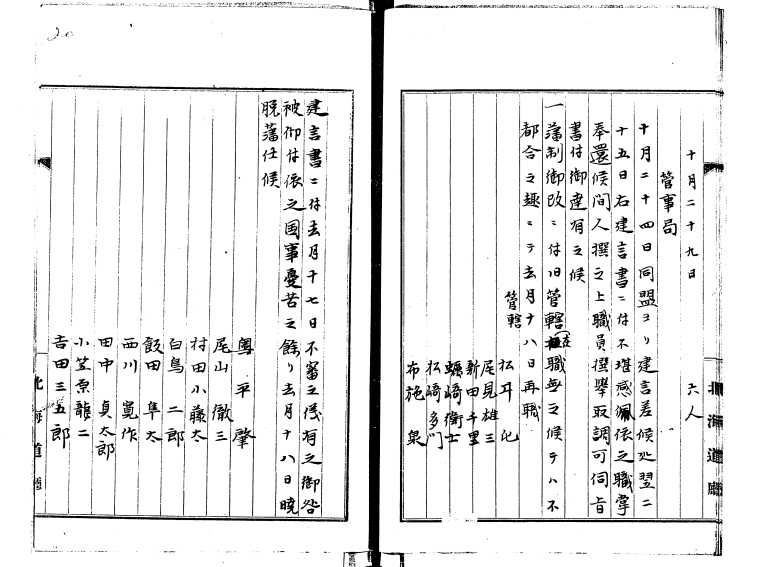 十月二十九日　六人
管事局
十月二十四日同盟ヨリ建言差候処翌二
十五日右建言書ニ付不堪感佩依之職掌
奉還候間人撰之上職員撰挙取調可伺旨
書付御達有之候
一藩制御改ニ付旧管轄在職無之候テハ不
都合之趣ニテ去月十八日再職
管轄
松井
尾見雄三
新田千里
蠣崎衛士
松崎多門
布施泉
北海道廳
20
建言書ニ付去月十七日不審之儀有之御咎
被仰付依之国事憂苦之餘り去月十八日暁
脱藩仕候
粤平肇
尾山徹三
村田小藤太
白鳥二郎
飯田隼太
西川寛作
田中貞太郎
小笠原龍二
吉田三五郎
北海道廳